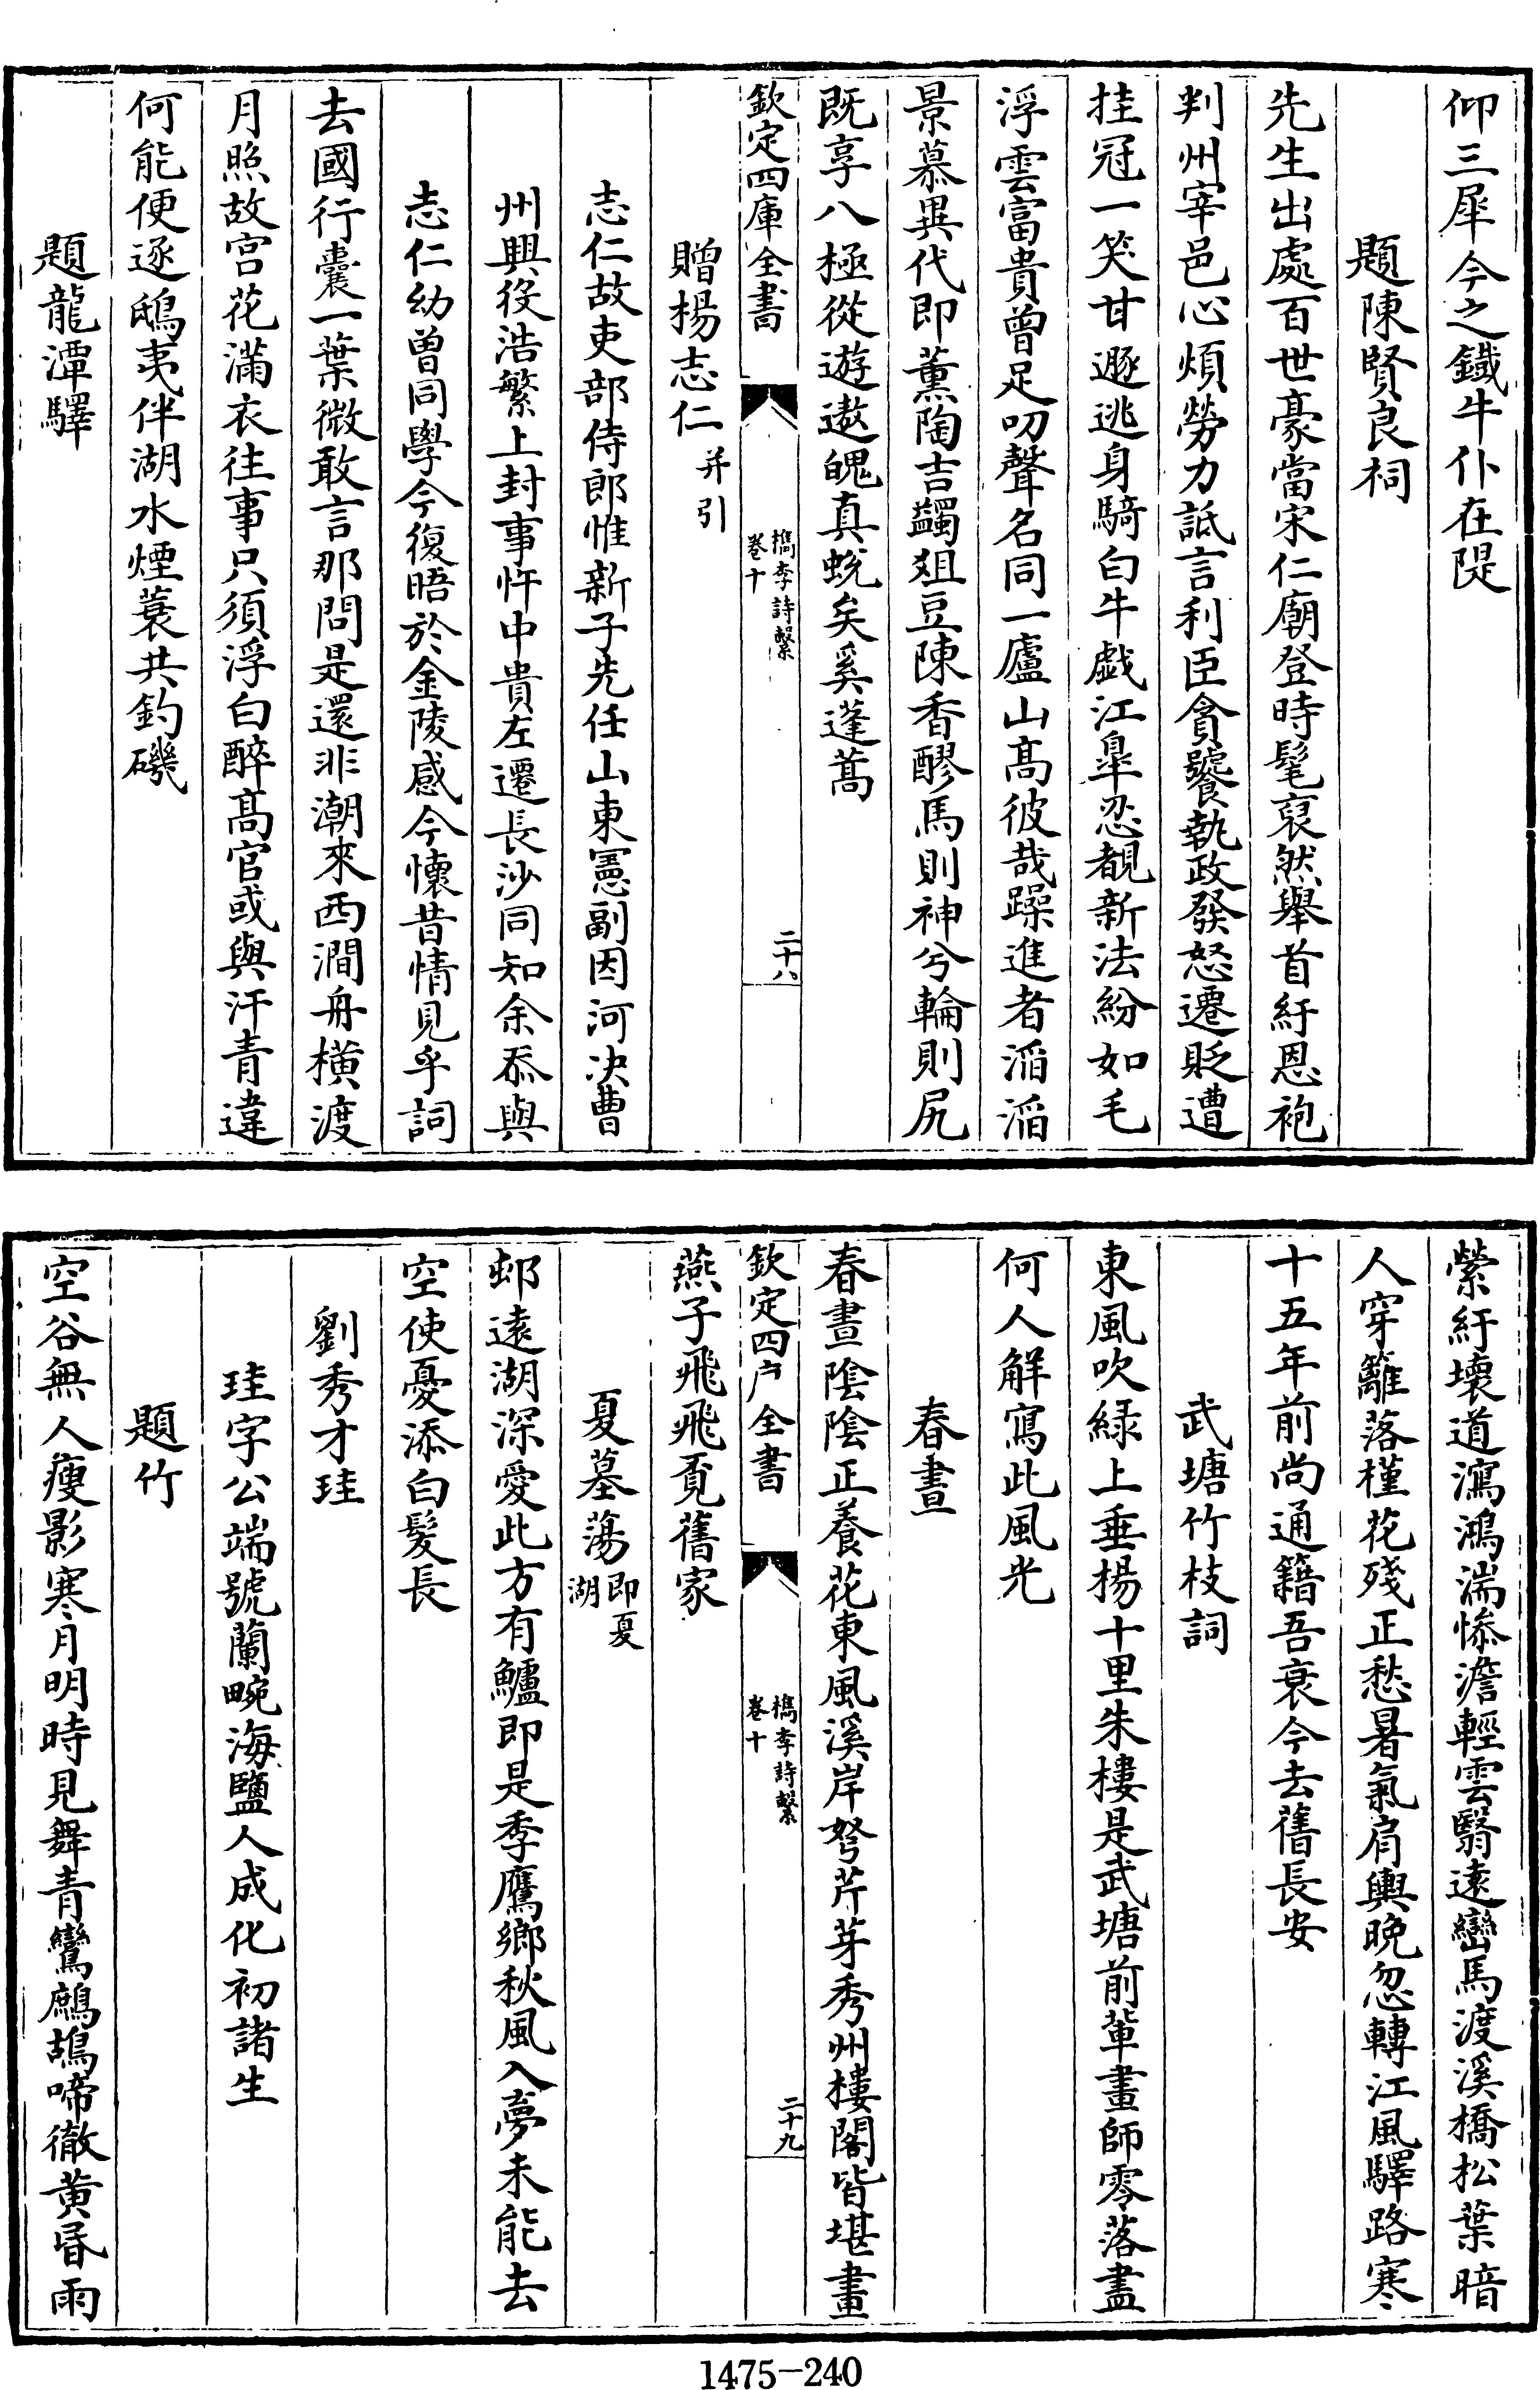 仰三犀今之鐵牛仆在隄
題陳賢良祠
先生出處百世豪當宋仁廟登時髦裒然舉首紆恩袍
判州宰邑心煩勞力詆言利臣貪饕執政發怒遷貶遭
挂冠一笑甘遯逃身騎白牛戯江臯忍覩新法紛如毛
浮雲富貴曾足叨聲名同一廬山髙彼哉躁進者滔滔
景慕異代即薰陶吉蠲爼豆陳香醪馬則神兮輪則尻
既享八極從遊遨䰟真蛻矣奚蓬蒿
欽定四庫全書
檇李詩繫
卷十
二十八
贈楊志仁并引
志仁故吏部侍郎惟新子先任山東憲副因河决曹
州興役浩繁上封事忤中貴左遷長沙同知余忝與
志仁幼曽同學今復晤於金陵感今懷昔情見乎詞
去國行囊一葉微敢言那問是還非潮來西澗舟横渡
月照故宫花滿衣往事只須浮白醉髙官或與汗青違
何能便逐鴟夷伴湖水煙蓑共釣磯
題龍潭驛
縈紆壊道瀉鴻湍惨澹輕雲翳逺巒馬渡溪橋松葉暗
人穿籬落槿花殘正愁暑氣肩輿晩忽轉江風驛路寒
十五年前尚通籍吾衰今去舊長安
武塘竹枝詞
東風吹緑上垂楊十里朱樓是武塘前輩畫師零落盡
何人解寫此風光
春晝
春晝陰陰正養花東風溪岸弩芹芽秀州樓閣皆堪畫
欽定四户全書
檇李詩繫
卷十
二十九
燕子飛飛覔舊家
夏墓蕩即夏湖
邨逺湖深愛此方有鱸即是季鷹鄉秋風入夢未能去
空使憂添白髪長
劉秀才珪
珪字公端號蘭畹海鹽人成化初諸生
題竹
空谷無人瘦影寒月明時見舞青鸞鷓鴣啼徹黄昬雨
1475-240